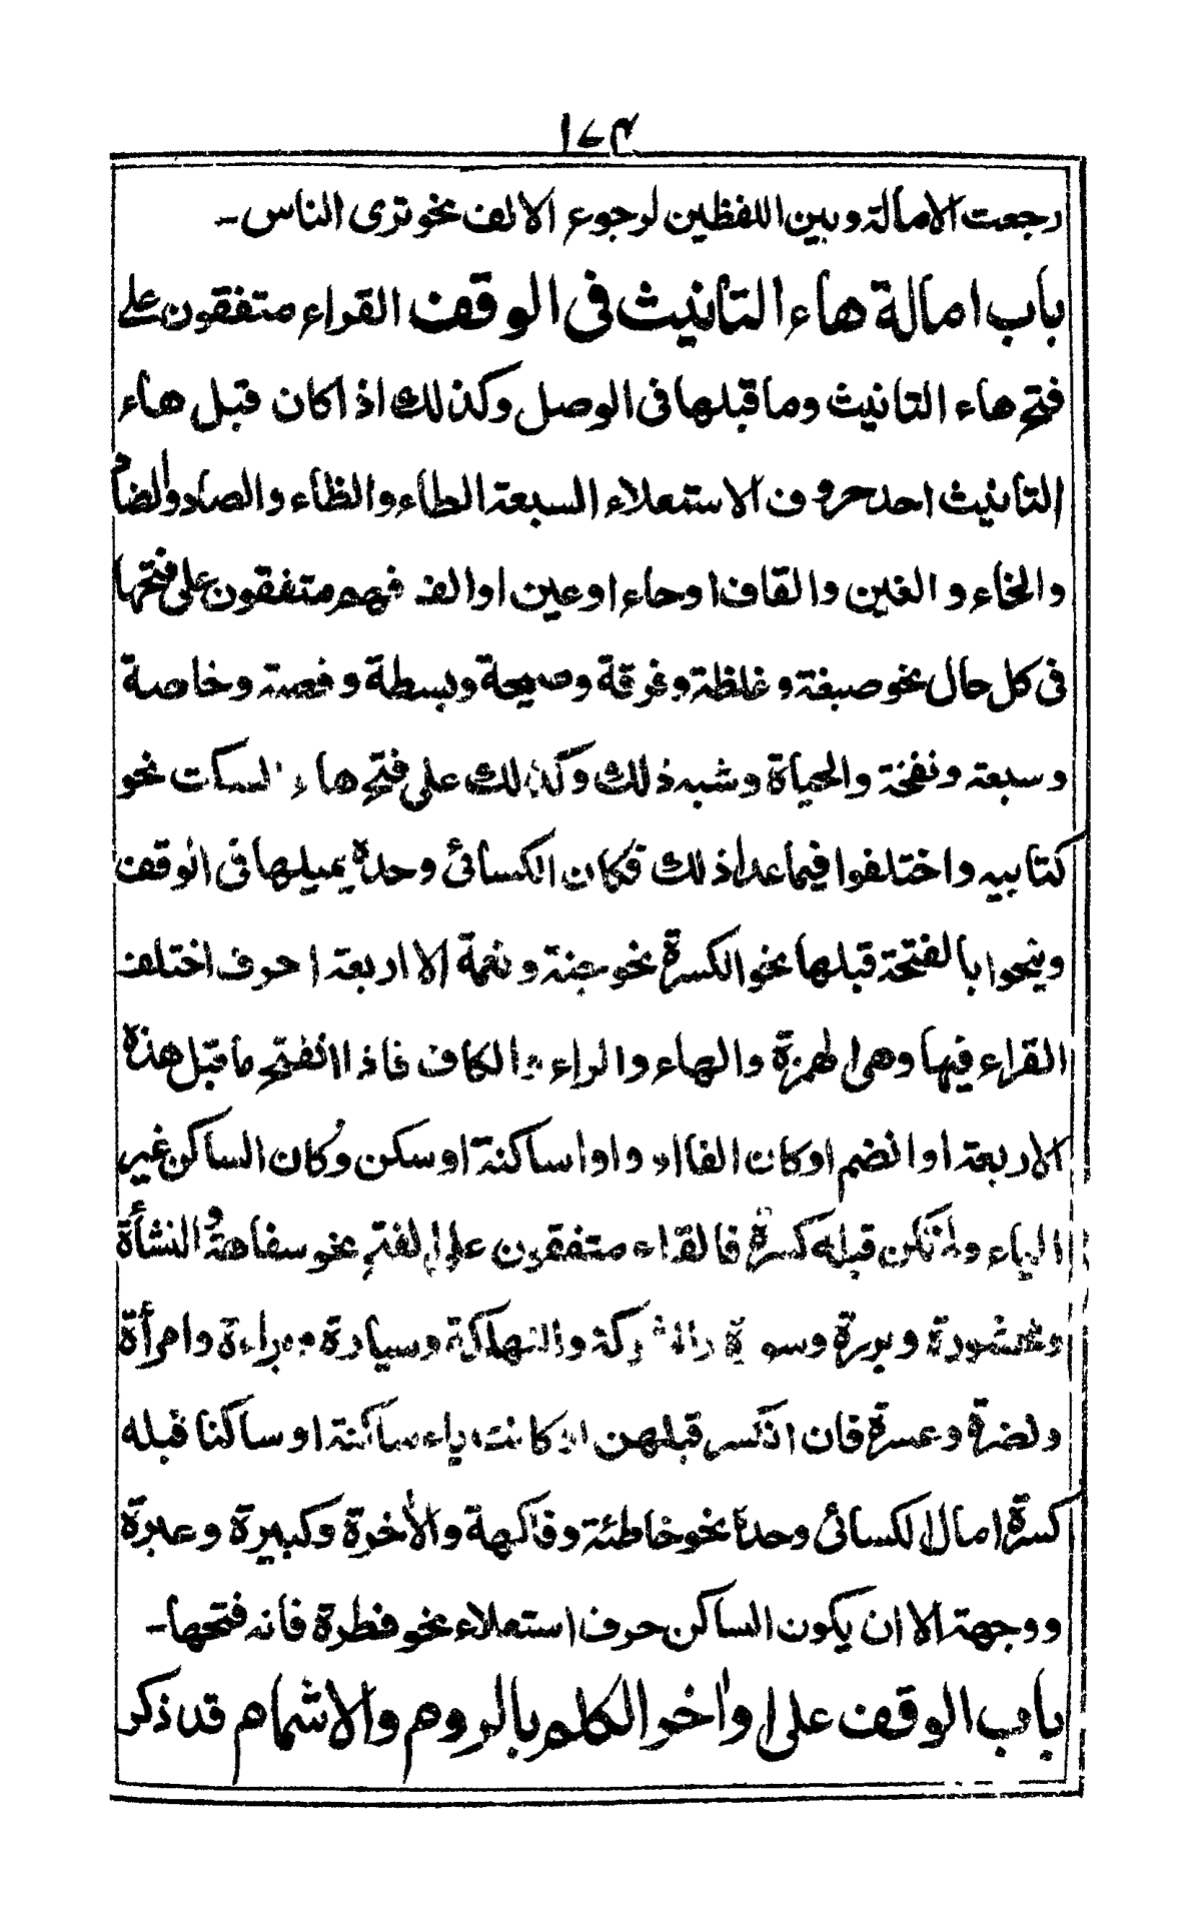 ١٧٤
رجعت الامالة وبين اللفظين لرجوع الالف نحو ترى الناس -
باب امالة هاء التانيث فى الوقف القراء متفقون على
فتح هاء التانيث وما قبلها فى الوصل وكذلك اذا كان قبل هاء
التانيث احد حروف الاستعلاء السبعة الطاء والظاء والصاد والضاد
والخاء والغين والقاف او حاء او عين او الف فهم متفقون على فتحها
فى كل حال نحو صبغة وغلظة وفرقة وصيحة وبسطة وفصة وخاصة
وسبعة ونفخة والحياة وشبه ذلك وكذلك على فتح هاء السكت نحو
كتابيه واختلفوا فيما عدا ذلك فكان الكسائى وحده يميلها فى الوقف
وينحوا بالفتحة قبلها نحو الكسرة نحو جنة ونعمة الا اربعة احرف اختلف
القراء فيها وهى الهمزة والهاء والراء والكاف فاذا انفتح ما قبل هذه
الاربعة او انضم او كان الفا او واوا ساكنة او سكن وكان الساكن غير
الياء ولم تكن قبله كسرة فالقراء متفقون على الفتح نحو سفاهة والنشأة
ومحشورة وبررة وسوءة والشركة والتهلكة وسيارة وبراءة وامرأة
ولضرة وعسرة فان انكسر قبلهن او كانت ياء ساكنة او ساكنا قبله
كسرة امال الكسائى وحده نحو خاطئة وفاكهة والأخرة وكبيرة وعبرة
ووجهة الا ان يكون الساكن حرف استعلاء نحو فطرة فانه فتحها -
باب الوقف على اواخر الكلم بالروم والاشمام قد ذكر